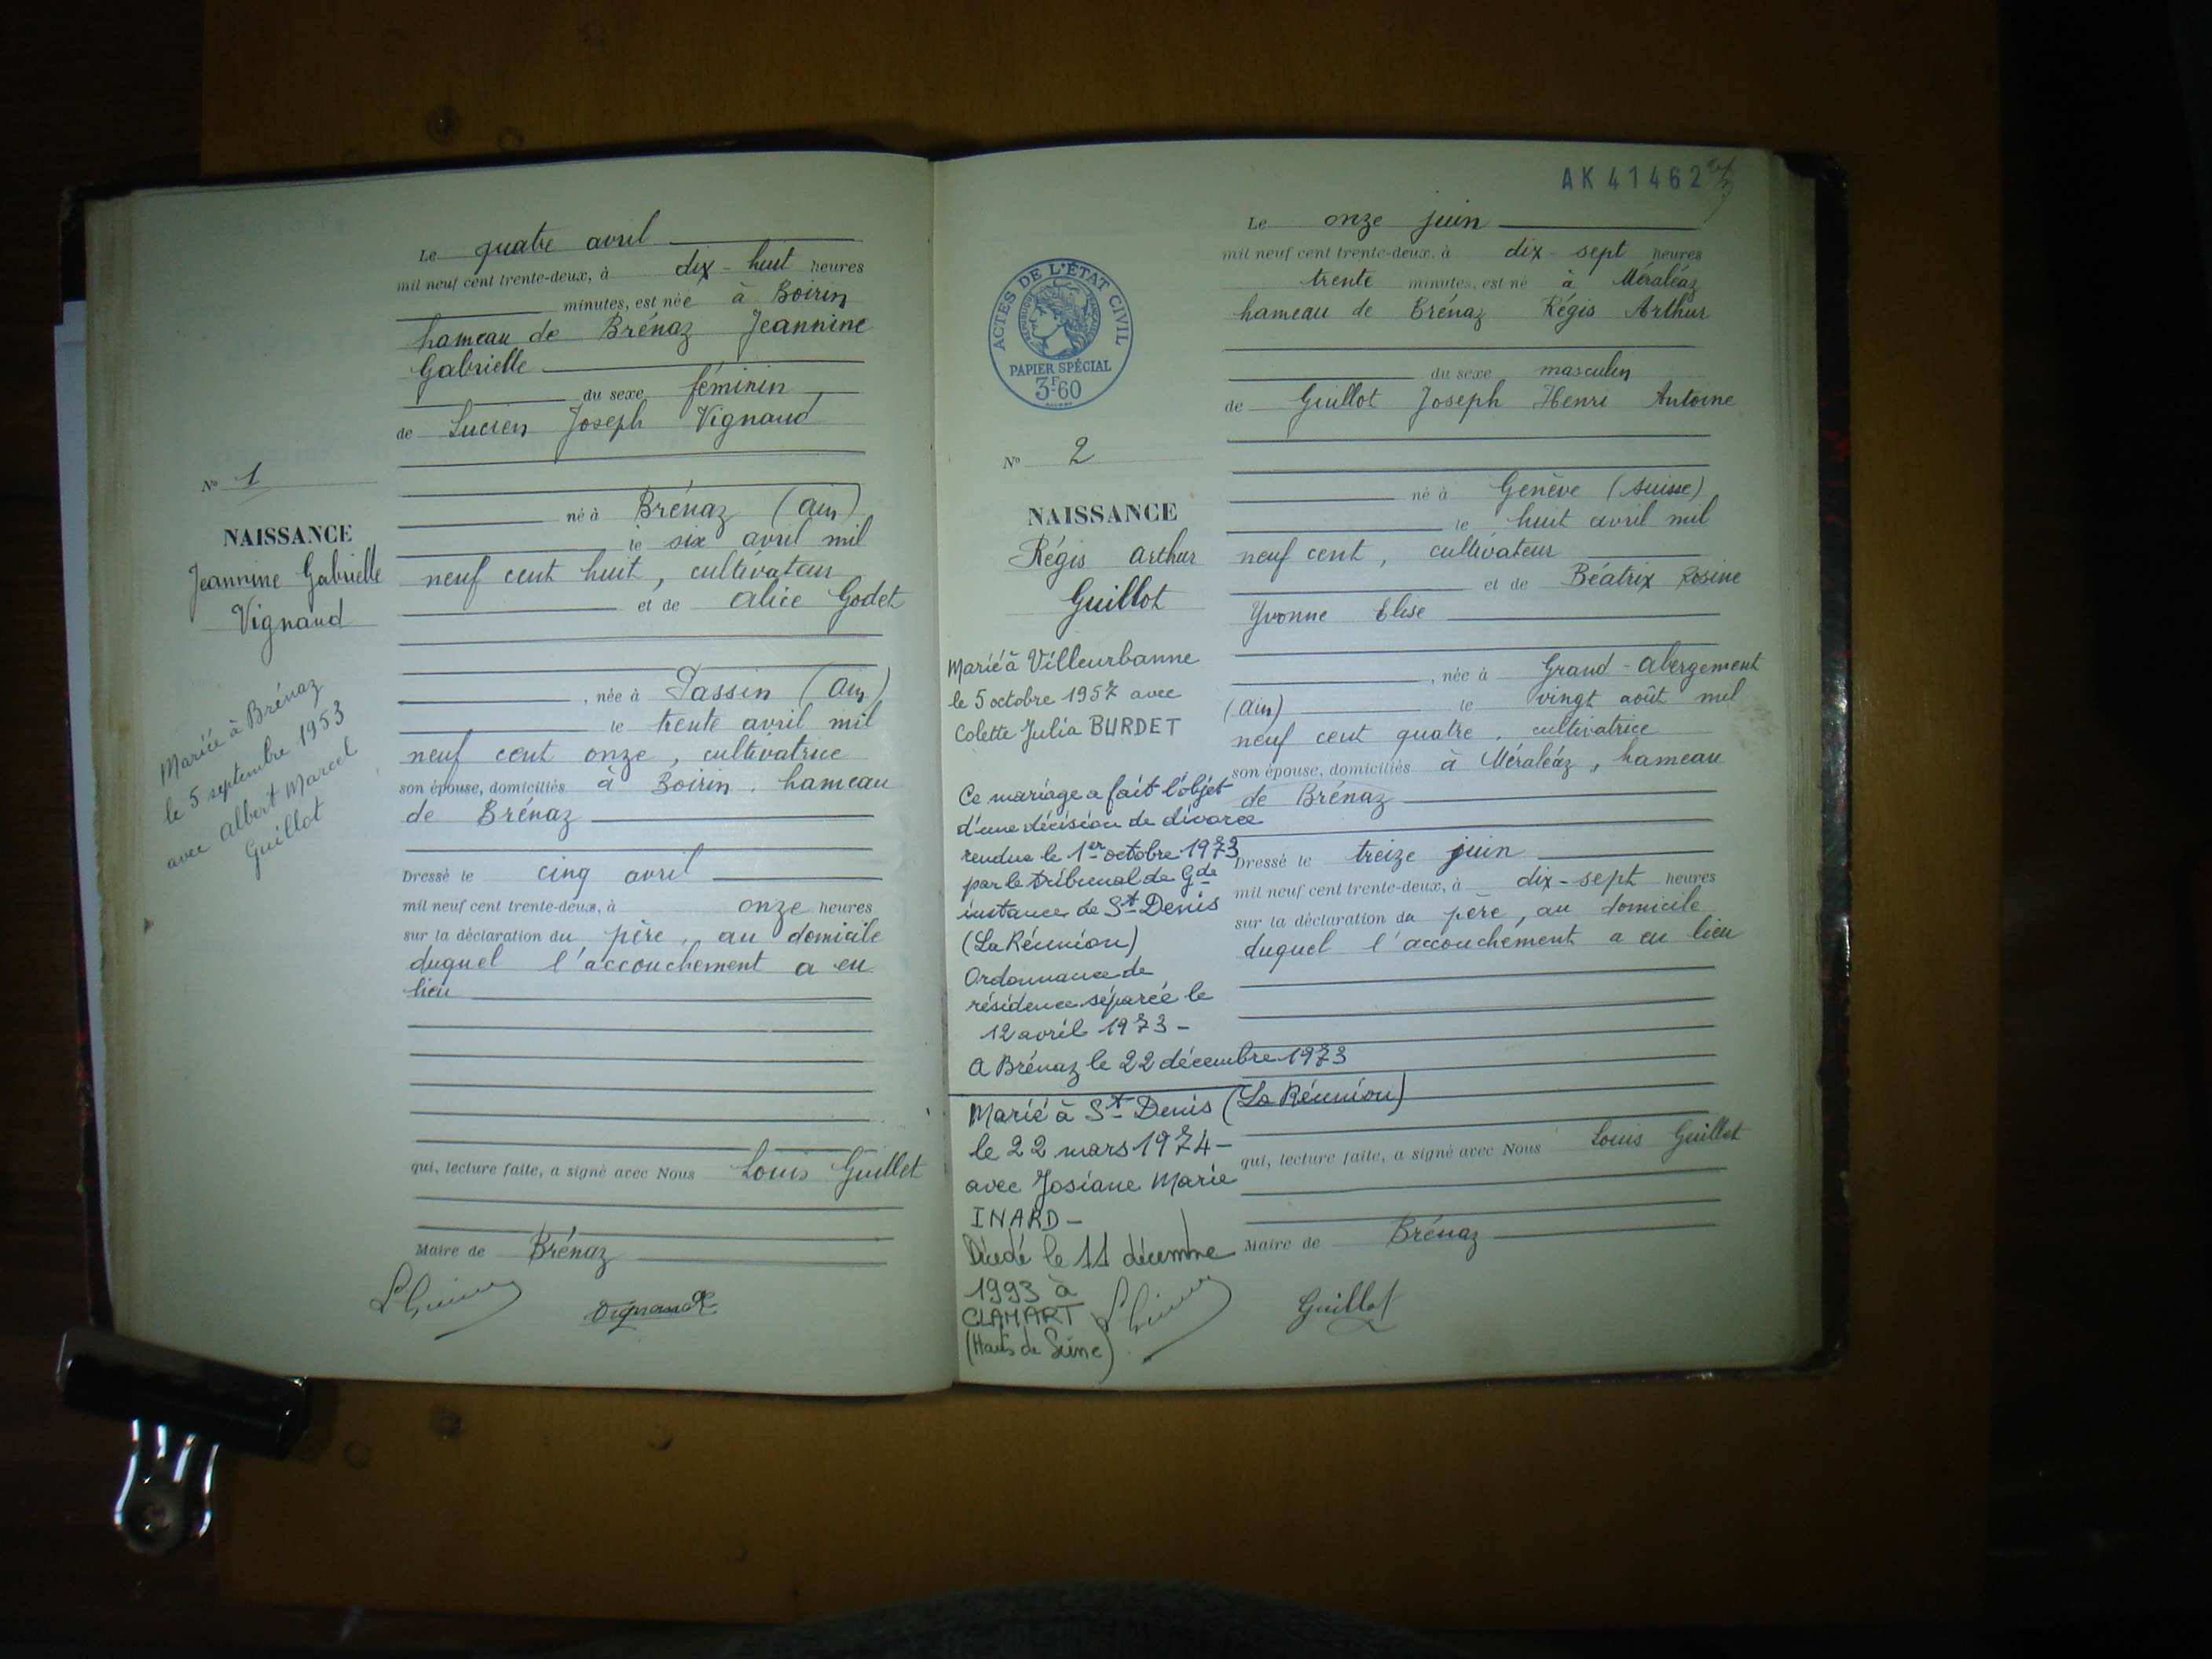 Le quatre avril
mil neuf cent trente-deux, à dix-huit heures
minutes, est née à Boirin
hameau de Brénaz Jeannine
Gabrielle
du sexe féminin
de Lucien Joseph Vignand
né à Brénaz (Ain)
le six avril mil
neuf cent huit, cultivateur
et de Alice Godet
, née à Passin (Ain)
le trente avril mil
neuf cent onze, cultivatrice
son épouse, domiciliés à Boirin, hameau
de Brénaz
Dressé le cinq avril
mil neuf cent trente-deux, à onze heures
sur la déclaration du père, au domicile
duquel l'accouchement a eu
lieu
qui, lecture faite, a signé avec Nous Louis Guillet
Maire de Brénaz
No 1
NAISSANCE
Jeannine Gabrielle
Vignand
Mariée à Brénaz
le 5 septembre 1953
avec Albert Marcel
Guillot
AK 41462
Le onze juin
mil neuf cent trente-deux, à dix-sept heures
trente minutes, est né à Méraléaz
hameau de Brénaz Régis Arthur
du sexe masculin
de Guillot Joseph Henri Antoine
né à Genève (Suisse)
le huit avril mil
neuf cent, cultivateur
et de Béatrix Rosine
Yvonne Elise
, née à Grand-Abergement
(Ain) le vingt août mil
neuf cent quatre, cultivatrice
son épouse, domiciliés à Méraléaz, hameau
de Brénaz
Dressé le treize juin
mil neuf cent trente-deux, à dix-sept heures
sur la déclaration du père, au domicile
duquel l'accouchement a eu lieu
qui, lecture faite, a signé avec Nous Louis Guillet
Maire de Brénaz
Guillot
ACTES DE L'ÉTAT CIVIL
RÉPUBLIQUE FRANÇAISE
PAPIER SPÉCIAL
3F.60
No 2
NAISSANCE
Régis Arthur
Guillot
Marié à Villeurbanne
le 5 octobre 1957 avec
Colette Julia BURDET
Ce mariage a fait l'objet
d'une décision de divorce
rendue le 1er octobre 1973
par le tribunal de Gde
instance de St Denis
(La Réunion)
Ordonnance de
résidence séparée le
12 avril 1973 -
A Brénaz le 22 décembre 1973
Marié à St Denis (La Réunion)
le 22 mars 1974 -
avec Josiane Marie
INARD -
Décédé le 11 décembre
1993 à
CLAMART
(Hauts de Seine)